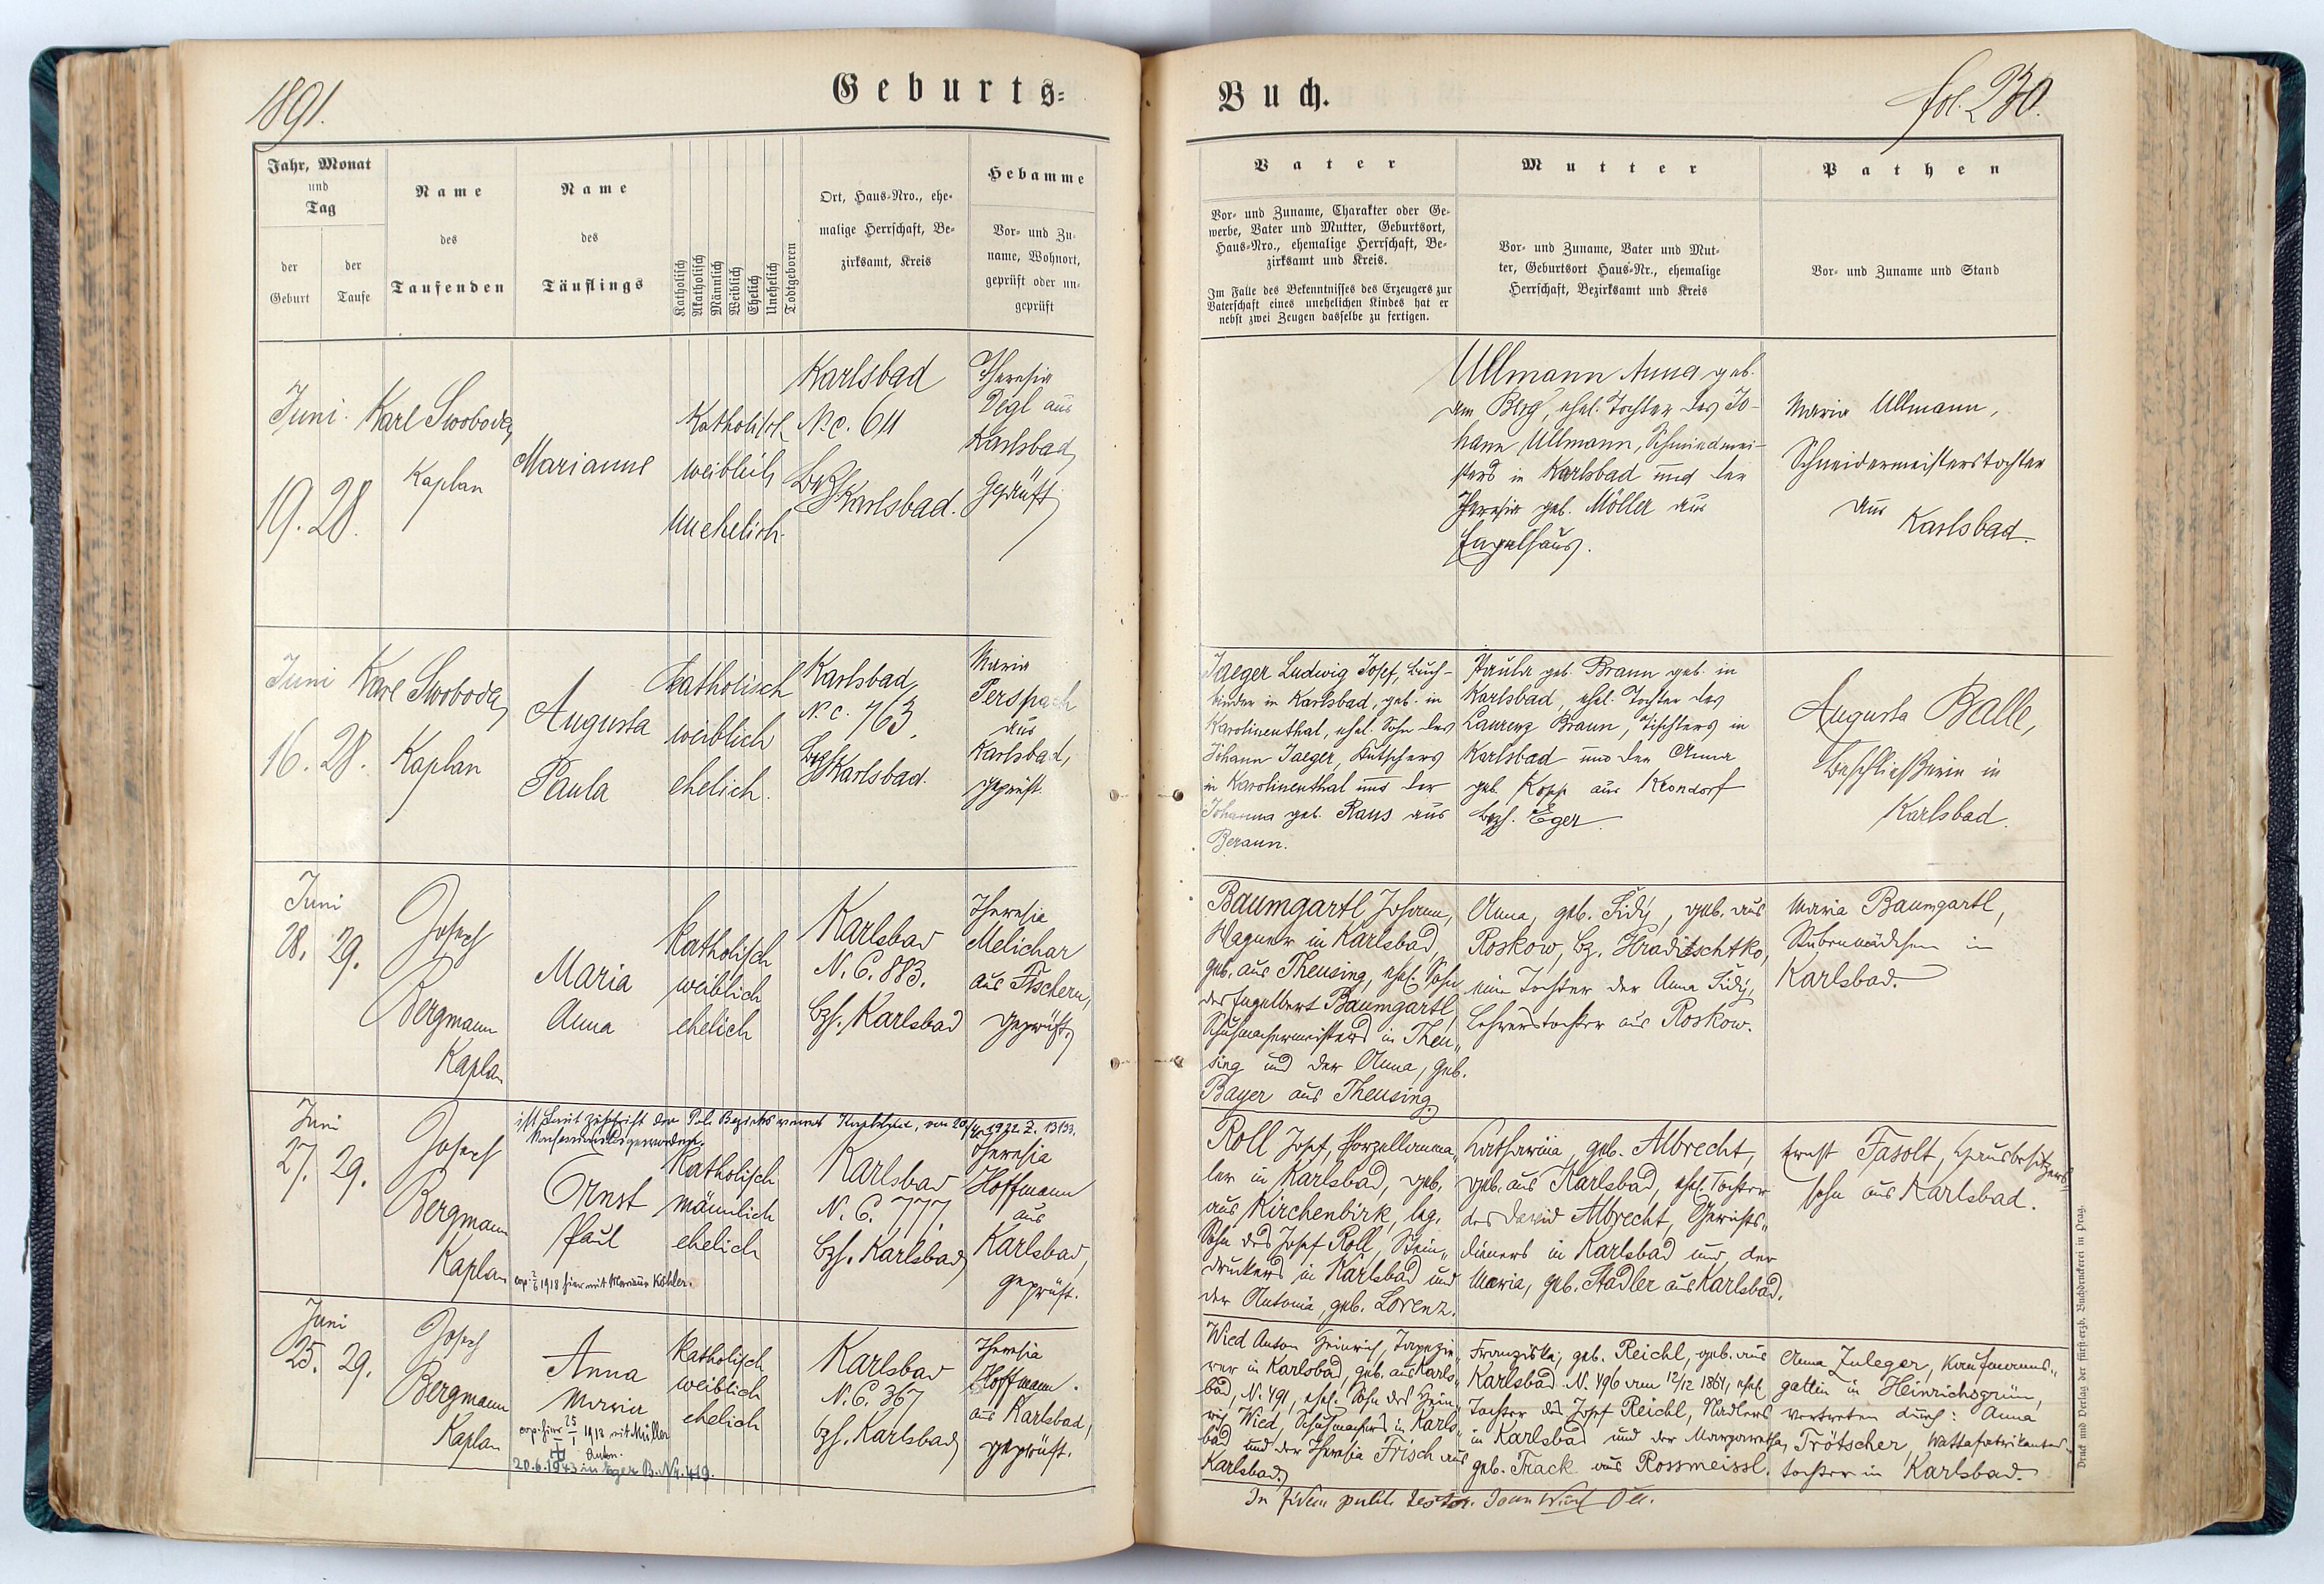 1891.
Geburts-
Jahr, Monat
und
Tag
der
Geburt
der
Taufe
Name
des
Taufenden
Name
des
Täuflings
Katholisch
Akatholisch
Männlich
Weiblich
Ehelich
Unehelich
Todtgeboren
Ort, Haus-Nro., ehe-
malige Herrschaft, Be-
zirksamt, Kreis
Hebamme
Vor- und Zu-
name, Wohnort,
geprüft oder un-
geprüft
Juni
19. 28.
Karl Swoboda
Kaplan
Marianne
Katholisch
weiblich
unehelich.
Karlsbad
N.c. 611
Bzh Karlsbad.
Theresia
Degl aus
Karlsbad
geprüft
Juni
16. 28.
Karl Swoboda
Kaplan
Augusta
Paula
katholisch
weiblich
ehelich.
Karlsbad
N.c. 763.
Bzh Karlsbad.
Maria
Perspach
aus
Karlsbad,
geprüft.
Juni
28. 29.
Josef
Bergmann
Kaplan
Maria
Anna
katholisch
weiblich
ehelich
Karlsbad
N. C. 883.
Bzh. Karlsbad
Theresia
Melichar
aus Fischern,
geprüft.
Juni
27. 29.
Josef
Bergmann
Kaplan
ist laut Zuschrift der Pol. Bezirks Karlsbad, vom 1922 Z. 13133.
Ernst
Paul
cop. 1918 hier mit Marianne Köhler.
Katholisch
männlich
ehelich
Karlsbad
N. C. 777.
Bzh. Karlsbad
Theresia
Hoffmann
aus
Karlsbad,
geprüft.
Juni
25. 29.
Josef
Bergmann
Kaplan
Anna
Maria
cop. hier 25/1 1918 mit Müller
Anton.
20.6.1943 in Eger B. Nr. 419.
katholisch
weiblich
ehelich
Karlsbad
N. C. 367
bzh. Karlsbad
Theresia
Hoffmann.
aus Karlsbad,
geprüft.
Buch.
fol. 230.
Vater
Vor- und Zuname, Charakter oder Ge-
werbe, Vater und Mutter, Geburtsort,
Haus-Nro., ehemalige Herrschaft, Be-
zirksamt und Kreis.
Im Falle des Bekenntnisses des Erzeugers zur
Vaterschaft eines unehelichen Kindes hat er
nebst zwei Zeugen dasselbe zu fertigen.
Mutter
Vor- und Zuname, Vater und Mut-
ter, Geburtsort Haus-Nr., ehemalige
Herrschaft, Bezirksamt und Kreis
Pathen
Vor- und Zuname und Stand
Ullmann Anna geb.
am Berg, ehel. Tochter des Jo-
hann Ullmann, Schmiedmei-
sters in Karlsbad und der
Theresia geb. Möller aus
Engelhaus.
Maria Ullmann,
Schneidermeisterstochter
aus
Karlsbad.
Jaeger Ludwig Josef, Buch-
binder in Karlsbad, geb. in
Karolinenthal, ehel. Sohn des
Johann Jaeger, Kutschers
in Karolinenthal und der
Johanna geb. Raus aus
Beraun.
Paula geb. Braun geb. in
Karlsbad, ehel. Tochter des
Laurenz Braun, Tischlers in
Karlsbad und der Anna
geb. Kopp aus Krondorf
bzh. Eger.
Augusta Balle,
Beschließerin in
Karlsbad.
Baumgartl Johann,
Wagner in Karlsbad,
geb. aus Theusing, ehel. Sohn
des Engelbert Baumgartl,
Schuhmachermeisters in Theu„
sing und der Anna, geb.
Bayer aus Theusing.
Anna, geb. Fidy, geb. aus
Roskow, bz. Hraditschtko,
eine Tochter der Anna Fidy,
Lehrerstochter aus Roskow.
Maria Baumgartl,
Stubenmädchen in
Karlsbad.
Roll Josef, Porzellanma„
ler in Karlsbad, geb.
aus Kirchenbirk, leg.
Sohn des Josef Roll, Stein„
druckers in Karlsbad und
der Antonia, geb. Lorenz.
Katharina, geb. Albrecht,
geb. aus Karlsbad, ehel. Tochter
des David Albrecht, Gerichts„
dieners in Karlsbad und der
Maria, geb. Stadler aus Karlsbad.
Ernst Fasolt, Hausbesitzers-
sohn aus Karlsbad.
Wied Anton Heinrich, Tapezie„
rer in Karlsbad, geb. aus Karls„
bad, N. 491, ehel. Sohn des Hein„
rich Wied, Schuhmachers in Karls„
bad und der Theresia Frisch aus
Karlsbad.
Franziska, geb. Reichl, geb. aus
Karlsbad N. 496 am 12/12 1861, ehel.
Tochter des Josef Reichl, Nadlers
in Karlsbad und der Margaretha,
geb. Track aus Rossmeissl.
Anna Zuleger, Kaufmanns„
gattin in Heinrichsgrün,
vertreten durch: Anna
Trötscher, Wattafabrikanten-
tochter in Karlsbad.
In fidem publ.
Druck und Verlag der fürst-erzb. Buchdruckerei in Prag.